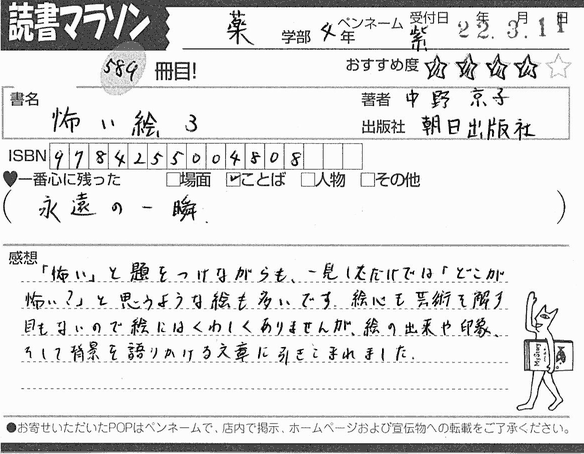 読書マラソン
薬 学部 4年 ペンネーム 紫 受付日 22年3月11日
589 冊目! おすすめ度 ★★★★☆
書名 怖い絵 3
著者 中野 京子
出版社 朝日出版社
ISBN 9784255004808
♥一番心に残った □場面 ☑ことば □人物 □その他
(永遠の一瞬.)
感想
「怖い」と題をつけながらも、一見しただけでは「どこが
怖い?」と思うような絵も多いです。絵心も芸術を解す
目もないので絵にはくわしくありませんが、絵の出来や印象、
そして背景を語りかける文章に引きこまれました.
●お寄せいただいたPOPはペンネームで、店内で掲示、ホームページおよび宣伝物への転載をご了承ください。